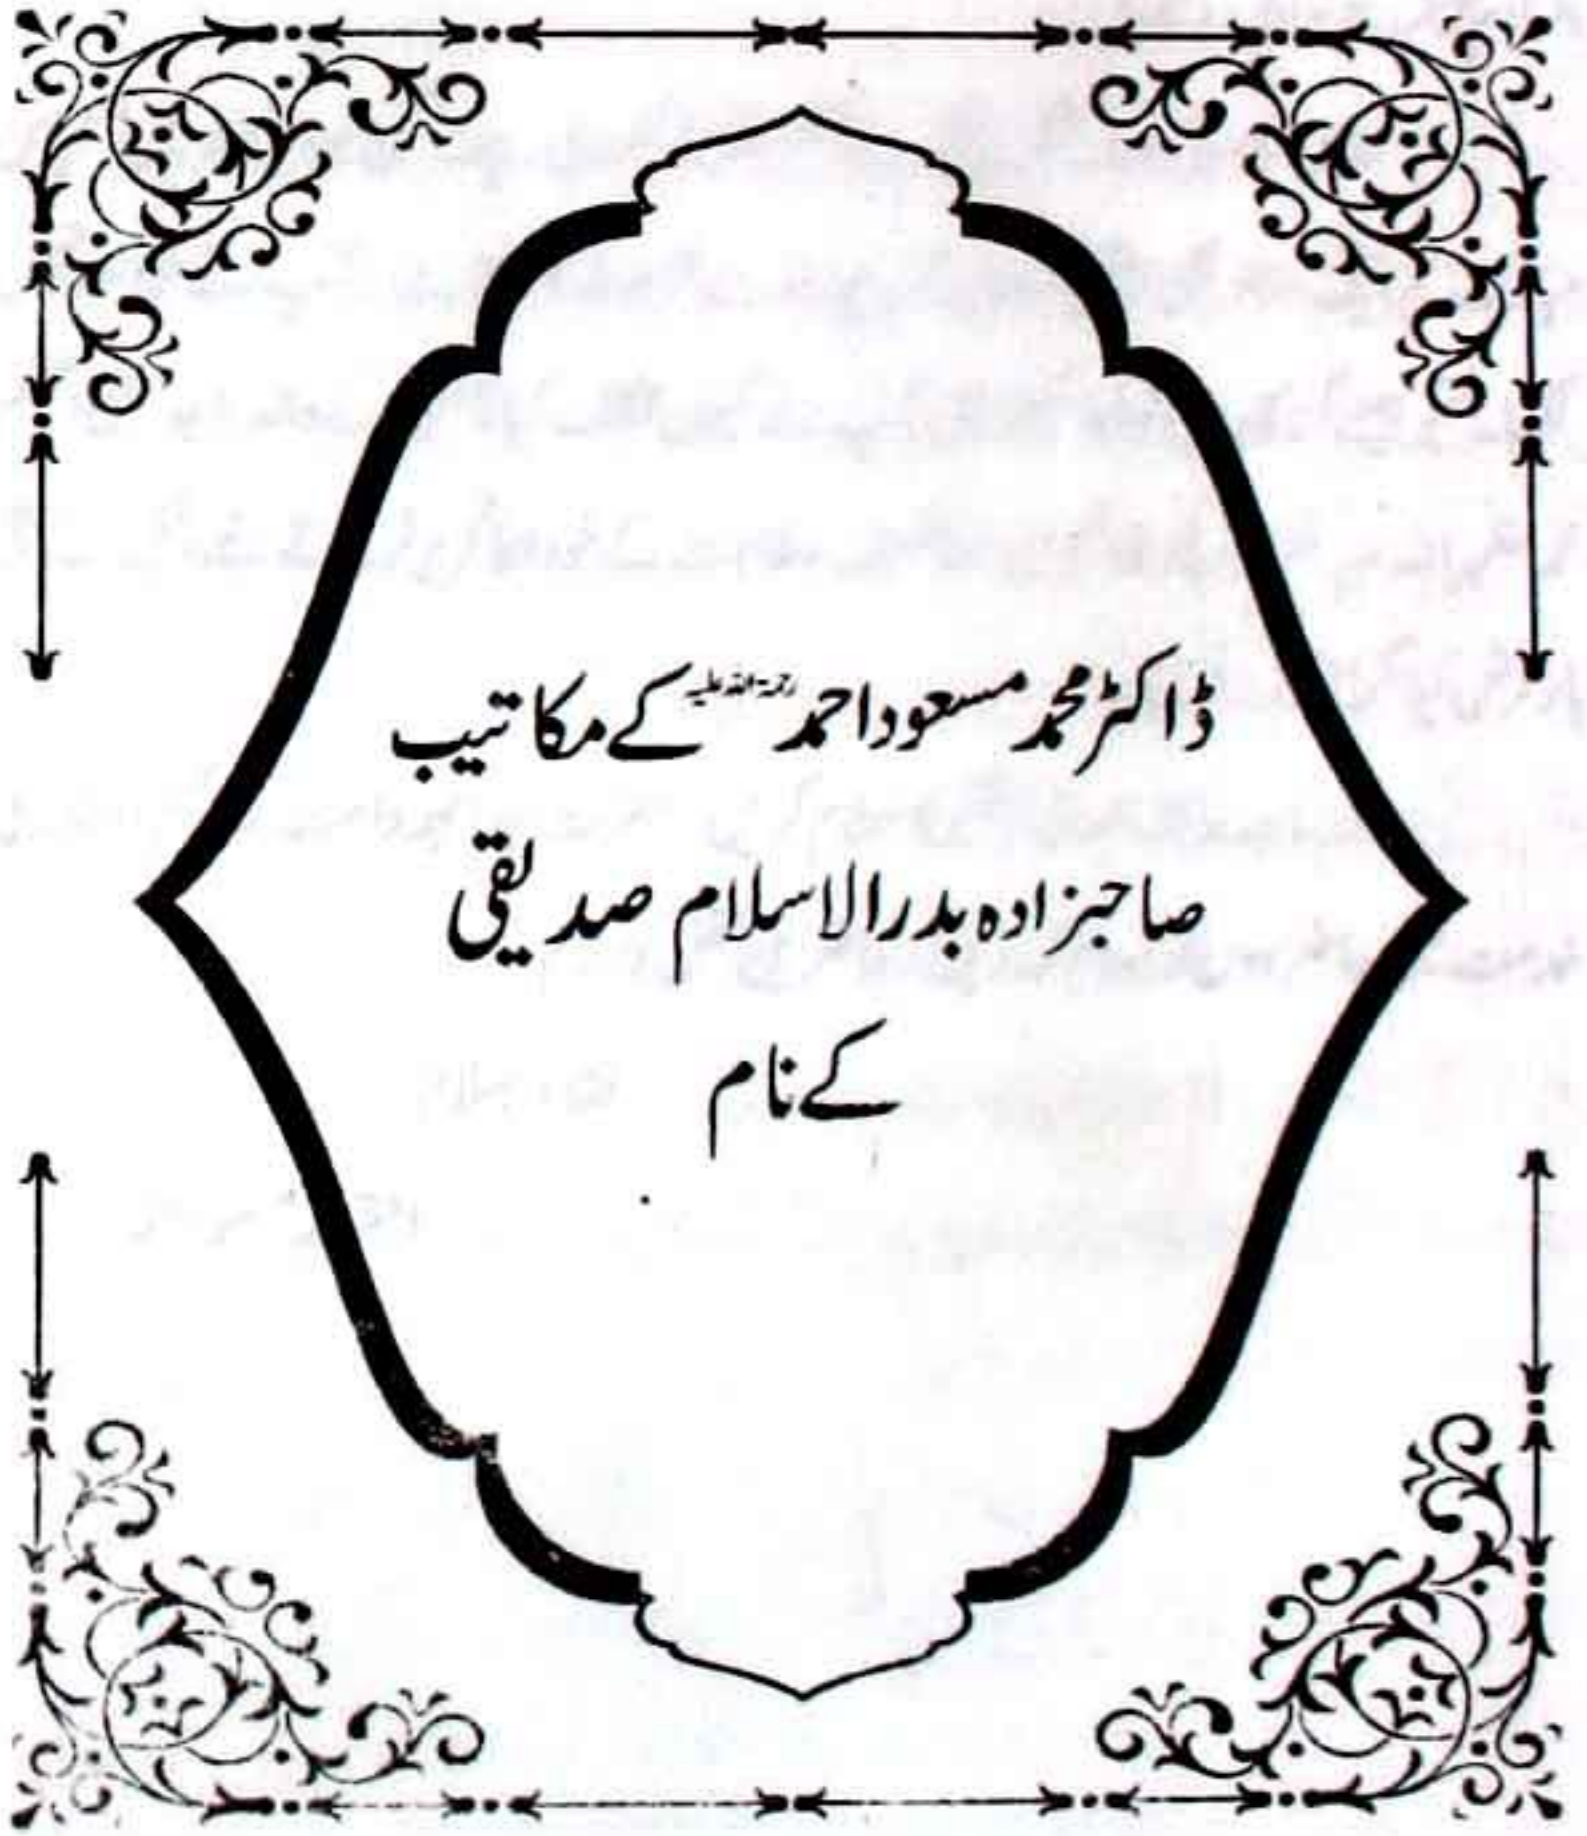 ڈاکٹر محمد مسعود احمد رحمۃ اللہ علیہ کے مکاتیب
صاحبزادہ بدر الاسلام صدیقی
کے نام